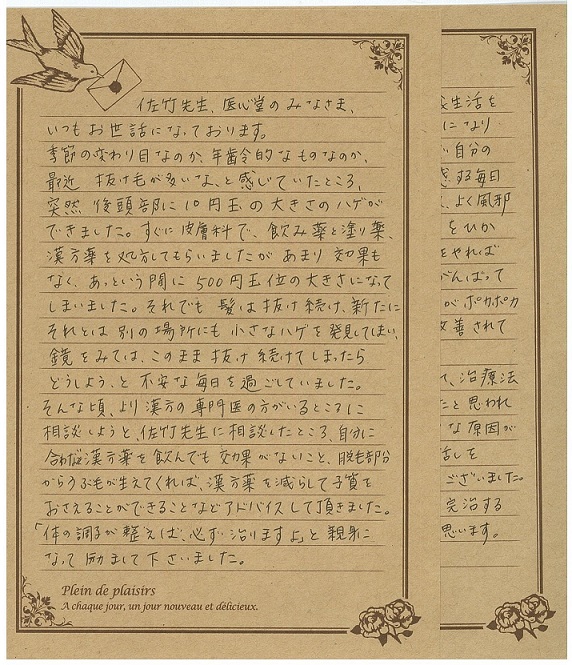 佐竹先生、医心堂のみなさま、
いつもお世話になっております。
季節の変わり目なのか、年齢的なものなのか、
最近 抜け毛が多いな、と感じていたところ、
突然 後頭部に10円玉の大きさのハゲが
できました。すぐに皮膚科で、飲み薬と塗り薬、
漢方薬を処方してもらいましたが あまり 効果も
なく、あっという間に 500円玉位の大きさになって
しまいました。それでも 髪は抜け続け、新たに
それとは 別の場所にも 小さなハゲを発見してしまい、
鏡をみては、このまま 抜け続けてしまったら
どうしよう、と 不安な毎日を過ごしていました。
そんな頃、より漢方の専門医の方がいるところに
相談しようと、佐竹先生に相談したところ、自分に
合わない漢方薬を飲んでも 効果がないこと、脱毛部分
からうぶ毛が生えてくれば、漢方薬を減らして予算を
おさえることができることなどアドバイスして頂きました。
「体の調子が整えば、必ず治りますよ」と親身に
なって励まして下さいました。
Plein de plaisirs
A chaque jour, un jour nouveau et délicieux.
生活を
になり
自分の
する毎日
、よく風邪
をひか
をやれば
がんばって
がポカポカ
改善されて
て、治療法
たと思われ
な原因が
話しを
ございました。
完治する
思います。